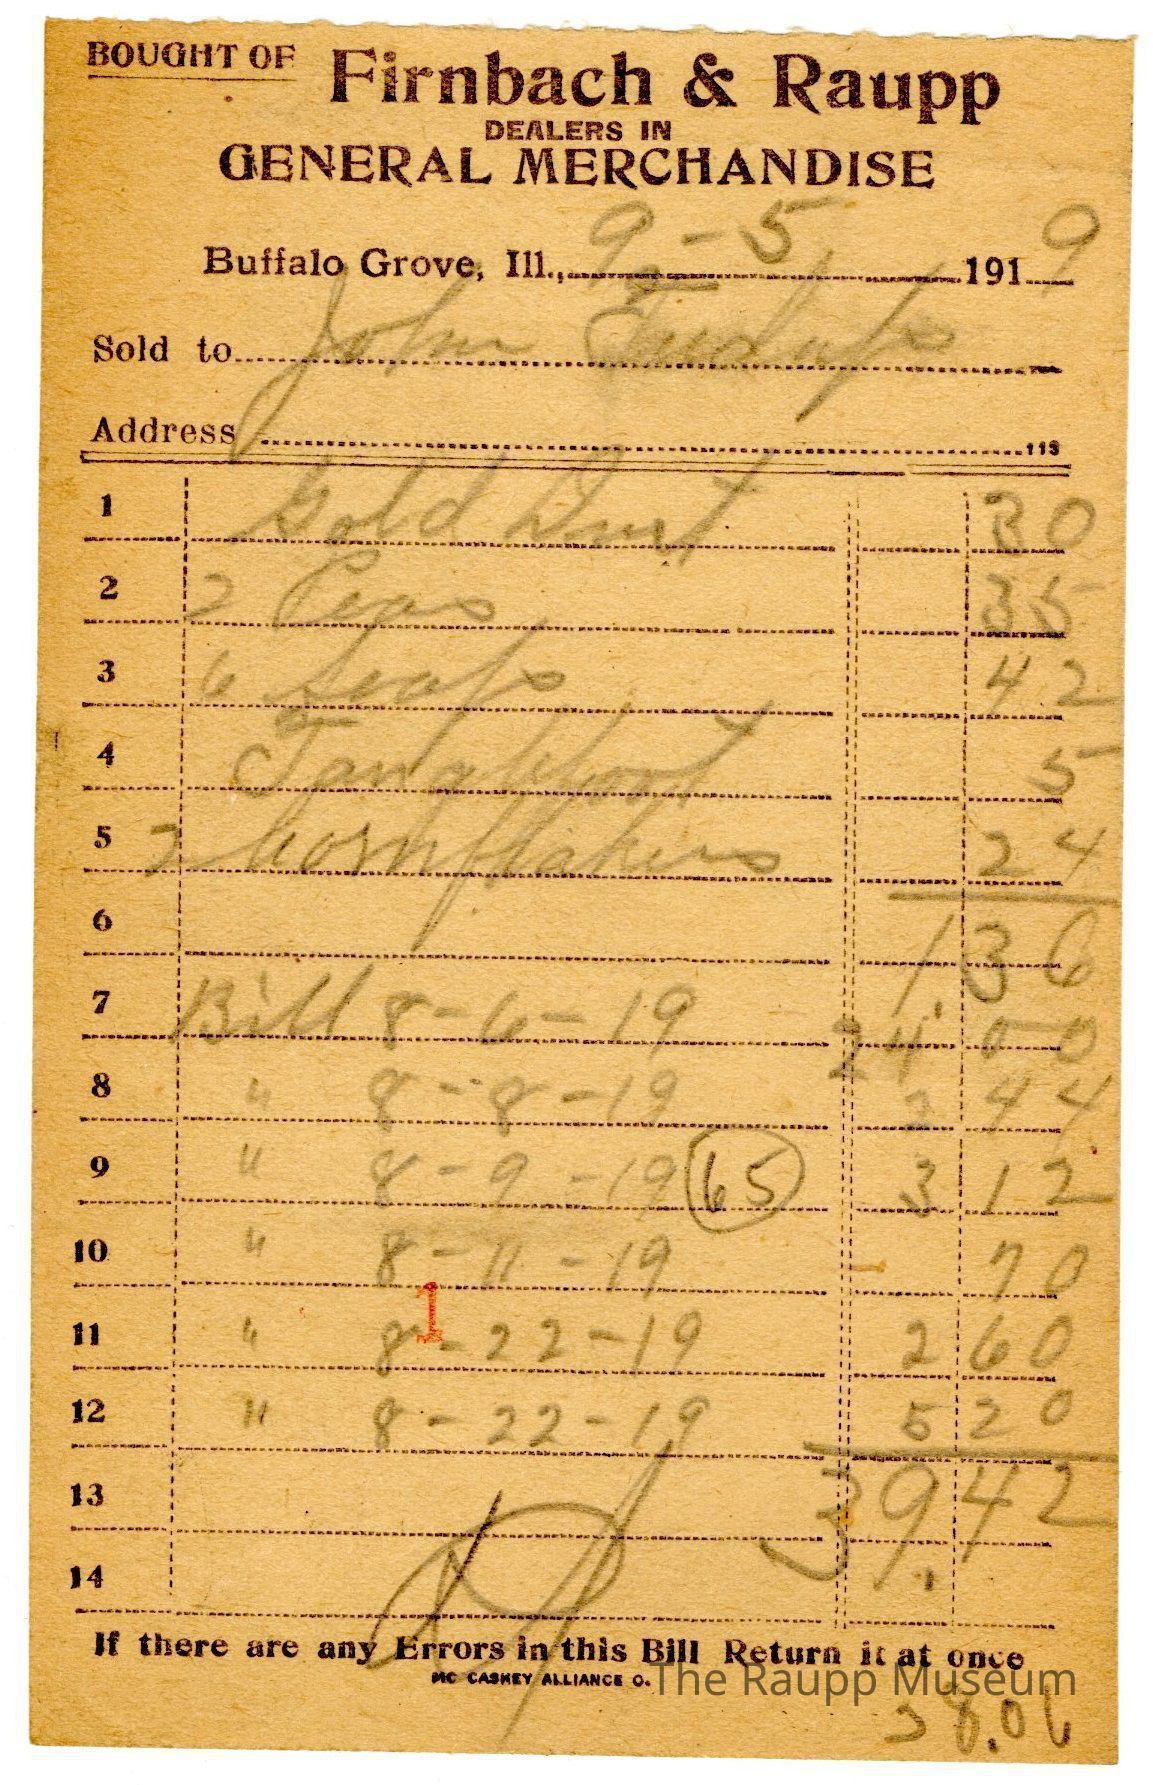 BOUGHT OF Firnbach & Raupp
DEALERS IN
GENERAL MERCHANDISE
Buffalo Grove, Ill., 9-5 1919
Sold to John
Address
113
1 Gold Dust 30
2 2 Peas 35
3 6 Soaps 42
4 Tanglefoot 5
5 2 Cornflakes 24
6 1.36
7 Bill 8-6-19 24.00
8 " 8-8-19 2 44
9 " 8-9-19 65 3 12
10 " 8-11-19 70
1
11 " 8-22-19 2 60
12 " 8-22-19 5 20
13 39.42
14
If there are any Errors in this Bill Return it at once
MC CASKEY ALLIANCE O.
The Raupp Museum
38.06